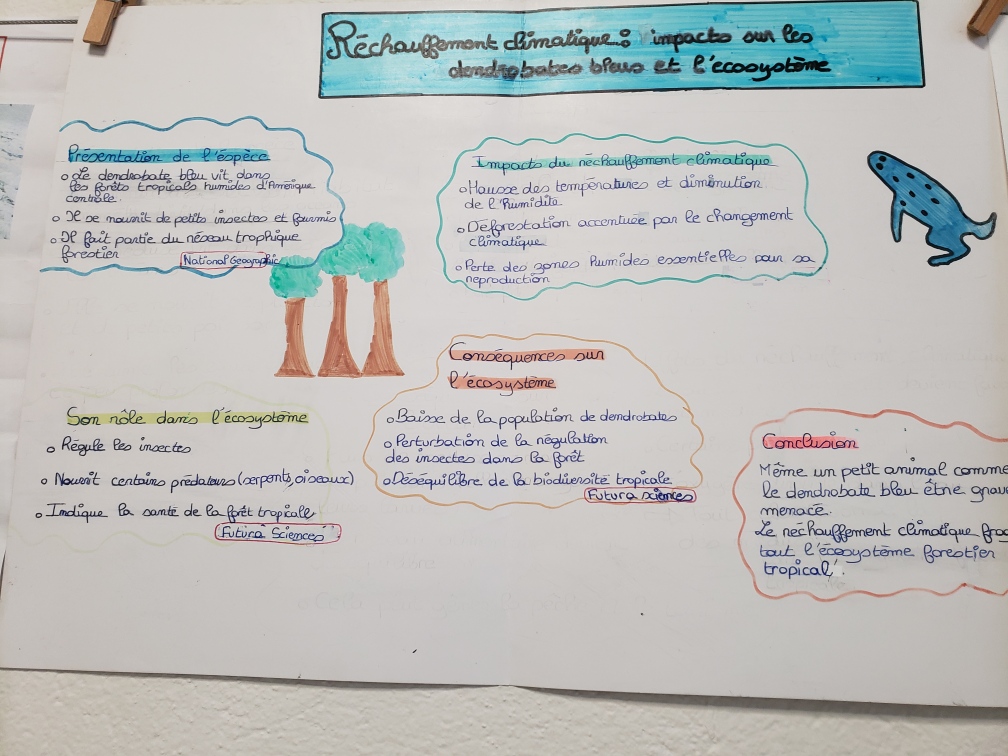 Réchauffement climatique : impacts sur les
dendrobates bleus et l'écosystème
Présentation de l'éspèce
Le dendrobate bleu vit dans
les forêts tropicals humides d'Amérique
centrale.
Il se nourrit de petits insectes et fourmis
Il fait partie du réseau trophique
forestier
National Geographic
Impacts du réchauffement climatique
Hausse des températures et diminution
de l'humidité
Déforestation accentuée par le changement
climatique
Perte des zones humides essentielles pour sa
reproduction
Conséquences sur
l'écosystème
Baisse de la population de dendrobates
Perturbation de la régulation
des insectes dans la forêt
Déséquilibre de la biodiversité tropicale
Futura sciences
Son rôle dans l'écosystème
Régule les insectes
Nourrit certains prédateurs (serpents, oiseaux)
Indique la santé de la forêt tropicale
Futura Sciences
Conclusion
Même un petit animal comme
le dendrobate bleu être
menacé.
Le réchauffement climatique
tout l'écosystème forestier
tropical.